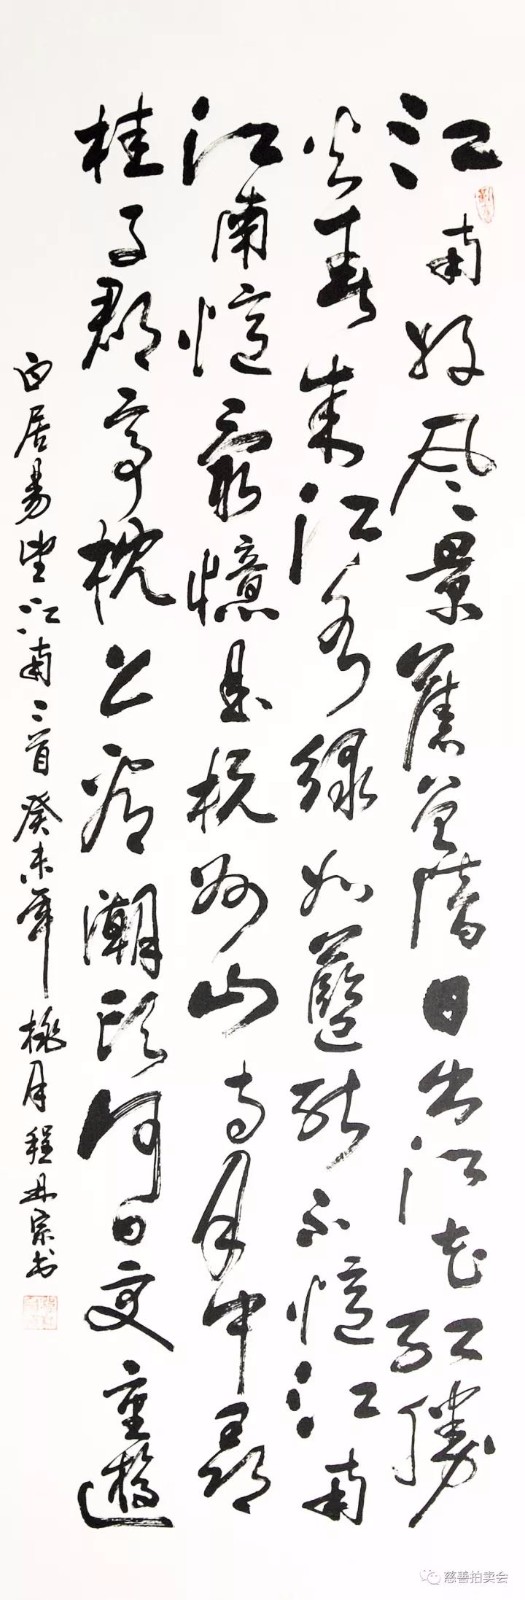 江南好风景舊曾諳日出江花红勝
火春来江水绿如藍能不憶江南
江南憶最憶是杭州山寺月中尋
桂子郡亭枕上看潮头何日更重遊
白居易望江南二首癸未年桃月程宗书
慈善拍卖会